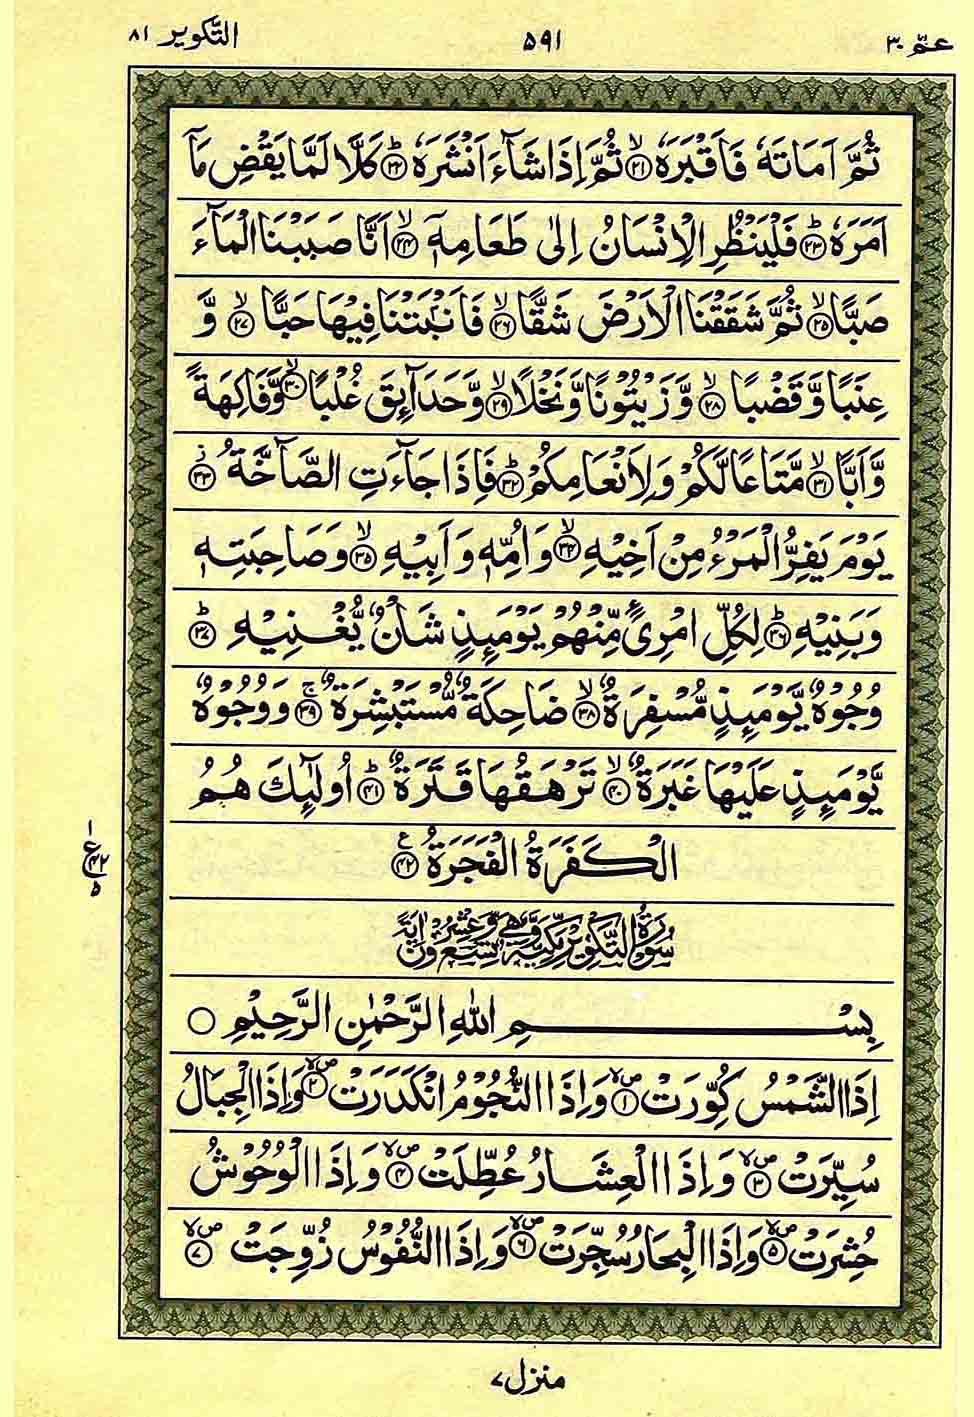 عمّ ٣٠
٥٩١
التكوير ٨١
ثُمَّ اَمَاتَهٗ فَاَقْبَرَهٗ ﴿٢١﴾ ثُمَّ اِذَا شَآءَ اَنْشَرَهٗ ﴿٢٢﴾ كَلَّا لَمَّا يَقْضِ مَآ
اَمَرَهٗ ﴿٢٣﴾ فَلْيَنْظُرِ الْاِنْسَانُ اِلٰى طَعَامِهٖٓ ﴿٢٤﴾ اَنَّا صَبَبْنَا الْمَآءَ
صَبًّا ﴿٢٥﴾ ثُمَّ شَقَقْنَا الْاَرْضَ شَقًّا ﴿٢٦﴾ فَاَنْۢبَتْنَا فِيْهَا حَبًّا ﴿٢٧﴾ وَّ
عِنَبًا وَّقَضْبًا ﴿٢٨﴾ وَّزَيْتُوْنًا وَّنَخْلًا ﴿٢٩﴾ وَّحَدَآئِقَ غُلْبًا ﴿٣٠﴾ وَّفَاكِهَةً
وَّاَبًّا ﴿٣١﴾ مَّتَاعًا لَّكُمْ وَلِاَنْعَامِكُمْ ﴿٣٢﴾ فَاِذَا جَآءَتِ الصَّآخَّةُ ﴿٣٣﴾
يَوْمَ يَفِرُّ الْمَرْءُ مِنْ اَخِيْهِ ﴿٣٤﴾ وَاُمِّهٖ وَاَبِيْهِ ﴿٣٥﴾ وَصَاحِبَتِهٖ
وَبَنِيْهِ ﴿٣٦﴾ لِكُلِّ امْرِئٍ مِّنْهُمْ يَوْمَئِذٍ شَاْنٌ يُّغْنِيْهِ ﴿٣٧﴾
وُجُوْهٌ يَّوْمَئِذٍ مُّسْفِرَةٌ ﴿٣٨﴾ ضَاحِكَةٌ مُّسْتَبْشِرَةٌ ﴿٣٩﴾ وَوُجُوْهٌ
يَّوْمَئِذٍ عَلَيْهَا غَبَرَةٌ ﴿٤٠﴾ تَرْهَقُهَا قَتَرَةٌ ﴿٤١﴾ اُولٰٓئِكَ هُمُ
الْكَفَرَةُ الْفَجَرَةُ ﴿٤٢﴾
سُوْرَةُ التَّكْوِيْرِ مَكِّيَّةٌ وَّهِيَ تِسْعٌ وَّعِشْرُوْنَ اٰيَةً
بِسْمِ اللّٰهِ الرَّحْمٰنِ الرَّحِيْمِ
اِذَا الشَّمْسُ كُوِّرَتْ ﴿١﴾ وَاِذَا النُّجُوْمُ انْكَدَرَتْ ﴿٢﴾ وَاِذَا الْجِبَالُ
سُيِّرَتْ ﴿٣﴾ وَاِذَا الْعِشَارُ عُطِّلَتْ ﴿٤﴾ وَاِذَا الْوُحُوْشُ
حُشِرَتْ ﴿٥﴾ وَاِذَا الْبِحَارُ سُجِّرَتْ ﴿٦﴾ وَاِذَا النُّفُوْسُ زُوِّجَتْ ﴿٧﴾
ع ٤٢ ٥
منزل ٧